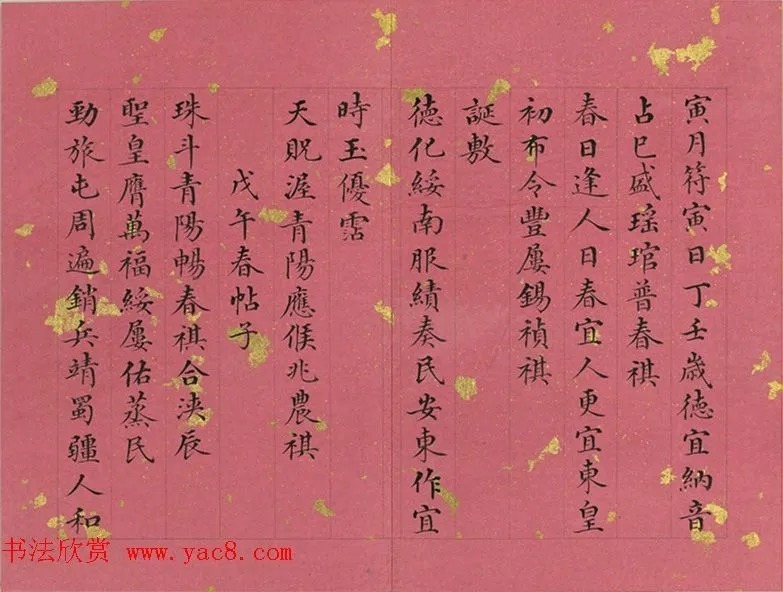 寅月符寅日丁壬歲德宜納音
占巳盛瑤琯普春祺
春日逢人日春宜人更宜東皇
初布令豐屢錫禎祺
誕敷
德化綏南服績奏民安東作宜
時玉優霑
天貺渥青陽應候兆農祺
戊午春帖子
珠斗青陽暢春祺合浹辰
聖皇膺萬福綏屢佑蒸民
勁旅屯周遍銷兵靖蜀疆人和
书法欣赏 www.yac8.com